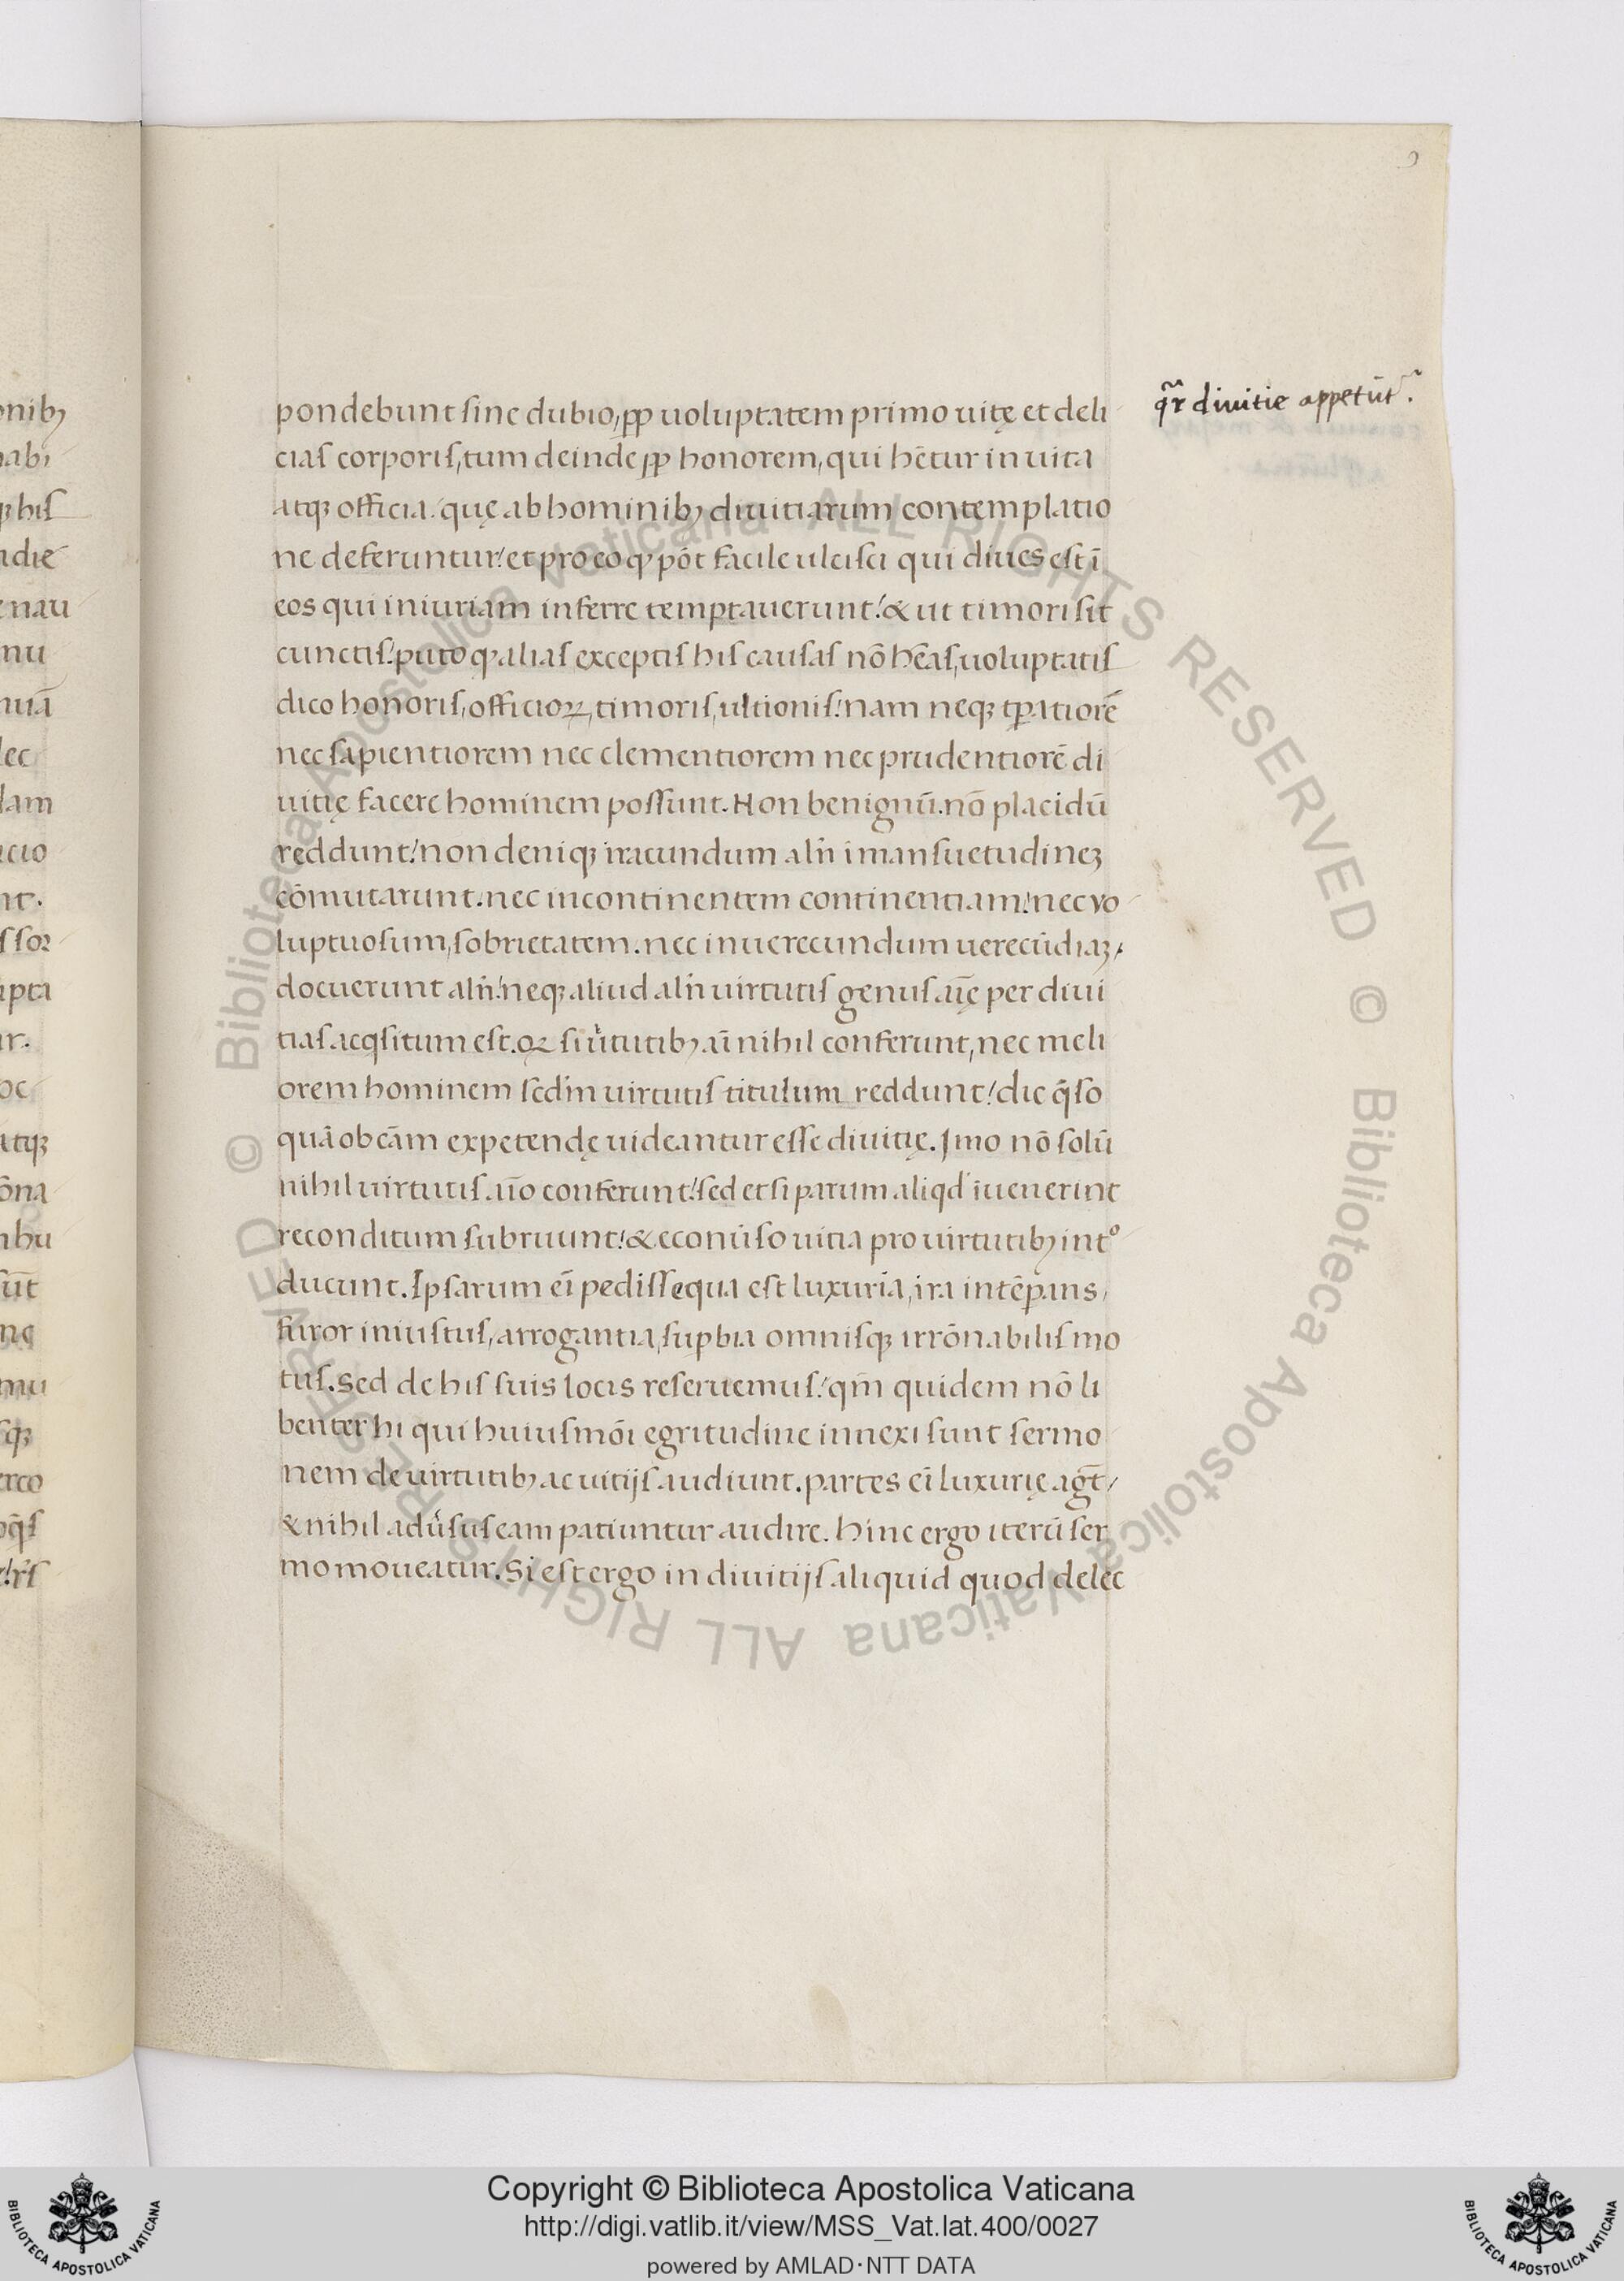 pondebunt sine dubio, ꝓp uoluptatem primo uitę et deli
cias corporis, tum deinde ꝓp honorem, qui hētur in uita
atqꝫ officia: quę ab hominibꝫ diuitiarum contemplatio
ne deferuntur: et pro eo ꝙ põt facile ulcisci qui diues est ī
eos qui iniuriam inferre temptauerunt: & ut timori sit
cunctis. puto ꝙ alias exceptis his causas nō hēas, uoluptatis
dico honoris, officioꝝ, timoris, ultionis: nam neqꝫ tꝑatiorē
nec sapientiorem nec clementiorem nec prudentiorē di
uitię facere hominem possunt. Non benignū. nō placidū
reddunt: non deniqꝫ iracundum alīn ī mansuetudineꝫ
cōmutarunt. nec incontinentem continentiam: nec vo
luptuosum, sobrietatem. nec inuerecundum uerecūdiaꝫ,
docuerunt alīn: neqꝫ aliud alīn uirtutis genus aīę per diui
tias acqsitum est. qꝝ si ut̄utibꝫ aī nihil conferunt, nec meli
orem hominem sedm uirtutis titulum reddunt: dic q̄so
quā ob cām expetendę uideantur esse diuitię. Imo nō solū
nihil uirtutis aīo conferunt: sed et si parum aliqd īuenerint
reconditum subruunt: & econūso uitia pro uirtutibꝫ intº
ducunt. Ipsarum eī pedissequa est luxuria, ira intēꝑans,
furor iniustus, arrogantia, suꝑbia omnisqꝫ irrōnabilis mo
tus. Sed de his suis locis reseruemus: qm̄ quidem nō li
benter hi qui huiusmōi egritudine innexi sunt sermo
nem de uirtutibꝫ ac uitijs audiunt. partes eī luxurię agt̄,
& nihil adūsus eam patiuntur audire. hinc ergo iterū ser
mo moueatur. Si est ergo in diuitijs aliquid quod delec
qr̄ diuitie appetūtʳ.
Copyright © Biblioteca Apostolica Vaticana
http://digi.vatlib.it/view/MSS_Vat.lat.400/0027
powered by AMLAD·NTT DATA
BIBLIOTECA APOSTOLICA VATICANA
BIBLIOTECA APOSTOLICA VATICANA
© Biblioteca Apostolica Vaticana ALL RIGHTS RESERVED
© Biblioteca Apostolica Vaticana ALL RIGHTS RESERVED